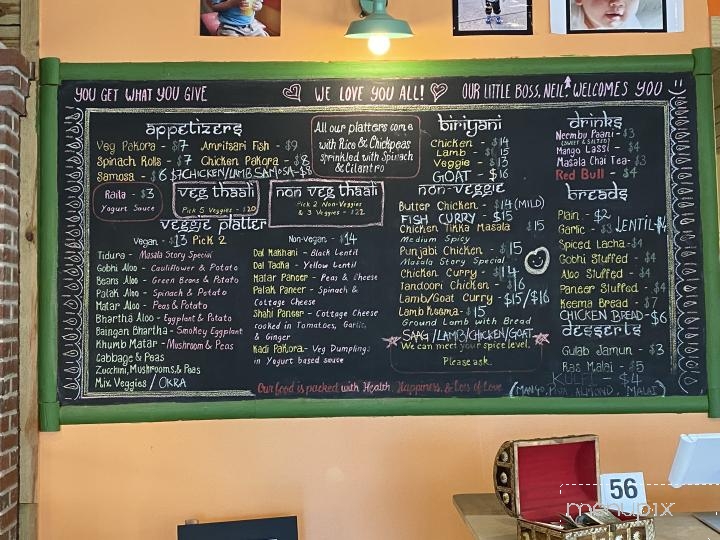 YOU GET WHAT YOU GIVE
WE LOVE YOU ALL!
OUR LITTLE BOSS, NEIL WELCOMES YOU
appetizers
Veg Pakora - $7
Amritsari Fish - $9
Spinach Rolls - $7
Chicken Pakora - $8
Samosa - $6
$7 CHICKEN/LAMB SAMOSA - $8
Raita - $3
Yogurt Sauce
veg thaali
Pick 5 Veggies - $20
non veg thaali
Pick 2 Non-Veggies
& 3 Veggies - $22
All our platters come
with Rice & Chickpeas
sprinkled with Spinach
& Cilantro
veggie platter
Vegan - $13 Pick 2
Tidura - Masala Story Special
Gobhi Aloo - Cauliflower & Potato
Beans Aloo - Green Beans & Potato
Palak Aloo - Spinach & Potato
Matar Aloo - Peas & Potato
Bhartha Aloo - Eggplant & Potato
Baingen Bhartha - Smokey Eggplant
Khumb Matar - Mushroom & Peas
Cabbage & Peas
Zucchini, Mushrooms & Peas
Mix Veggies / OKRA
Non-Vegan - $14
Dal Makhani - Black Lentil
Dal Tadka - Yellow Lentil
Matar Paneer - Peas & Cheese
Palak Paneer - Spinach &
Cottage Cheese
Shahi Paneer - Cottage Cheese
cooked in Tomatoes, Garlic,
& Ginger
Kadi Pakora - Veg Dumplings
in Yogurt based sauce
Our food is packed with Health, Happiness, & Lots of Love
biriyani
Chicken - $14
Lamb - $15
Veggie - $13
GOAT - $16
non-veggie
Butter Chicken - $14 (MILD)
FISH CURRY - $15
Chicken Tikka Masala $15
Medium Spicy
Punjabi Chicken - $15
Masala Story Special
Chicken Curry - $14
Tandoori Chicken - $16
Lamb/Goat Curry - $15/$16
Lamb Keema - $15
Ground Lamb with Bread
SAAG / LAMB / CHICKEN / GOAT
We can meet your spice level.
Please ask.
drinks
Neembu Paani - $3
(SWEET & SALTED)
Mango Lassi - $4
Masala Chai Tea - $3
Red Bull - $4
breads
Plain - $2
Garlic - $3
LENTIL $4
Spiced Lacha - $4
Gobhi Stuffed - $4
Aloo Stuffed - $4
Paneer Stuffed - $4
Keema Bread - $7
CHICKEN BREAD - $6
desserts
Gulab Jamun - $3
Ras Malai - $5
KULFI - $4
(MANGO, ALMOND, MALAI)
56
menupix